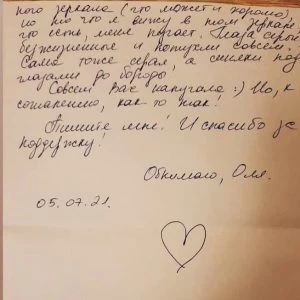 ного зеркала (что может и хорошо),
но то что я вижу в том зеркале
что есть, меня пугает. Глаза
безжизненные и потухли совсем.
Сама тоже серая, а синяки под
глазами до бороды
Совсем Вас напугала :) Но, к
сожалению, как-то так!
Пишите мне! И спасибо за
поддержку!
Обнимаю, Оля.
05.07.21.